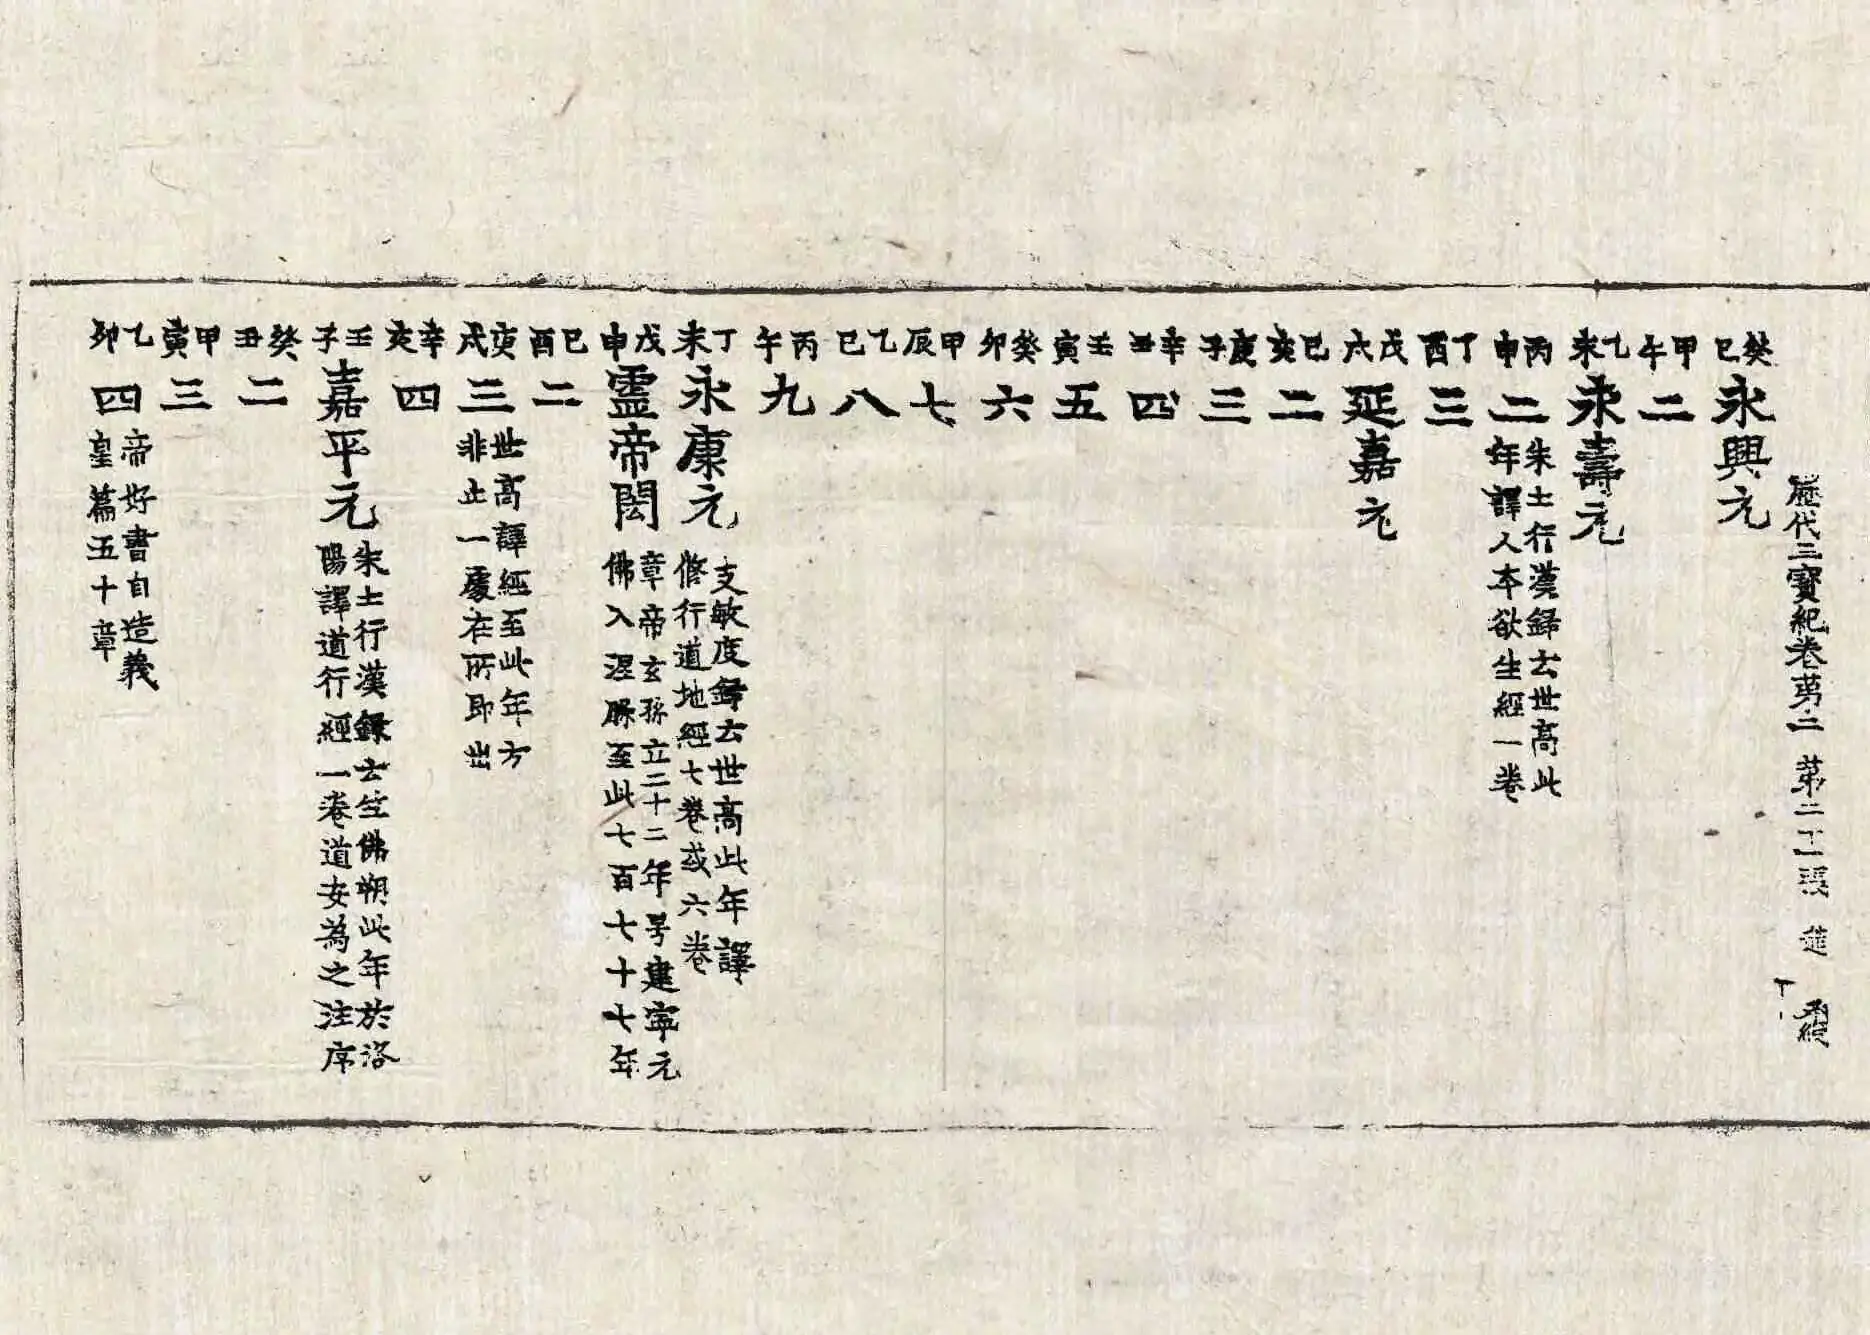 歷代三寶紀卷第二 第二十一張 楚
癸巳 永興元
甲午 二
乙未 永壽元
丙申 二 朱士行漢錄云世高此
年譯人本欲生經一卷
丁酉 三
戊六 延嘉元
巳亥 二
庚子 三
辛丑 四
壬寅 五
癸卯 六
甲辰 七
乙巳 八
丙午 九
丁未 永康元 支敏度錄云世高此年譯
修行道地經七卷或六卷
戊申 靈帝閎 章帝玄孫立二十二年号建寧元
佛入涅槃至此七百七十七年
巳酉 二
庚戌 三 世高譯經至此年方
非止一處在所即出
辛亥 四
壬子 嘉平元 朱士行漢録云竺佛朔此年於洛
陽譯道行經一卷道安為之注序
癸丑 二
甲寅 三
乙卯 四 帝好書自造義
皇篇五十章